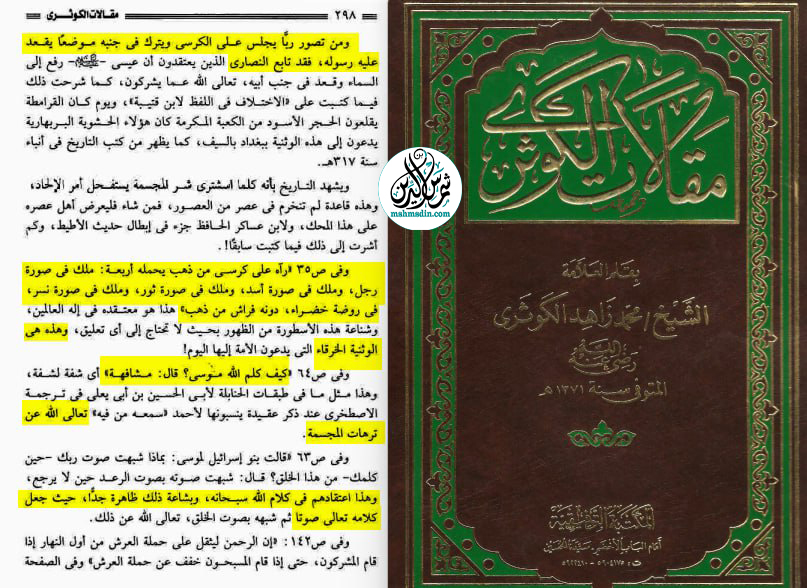 ٢٩٨
مقالات الكوثرى
ومن تصور ربًّا يجلس على الكرسى ويترك فى جنبه موضعًا يقعد
عليه رسوله، فقد تابع النصارى الذين يعتقدون أن عيسى -ﷺ- رفع إلى
السماء وقعد فى جنب أبيه، تعالى الله عما يشركون، كما شرحت ذلك
فيما كتبت على «الاختلاف فى اللفظ لابن قتيبة»، ويوم كان القرامطة
يقلعون الحجر الأسود من الكعبة المكرمة كان هؤلاء الحشوية البربهارية
يدعون إلى هذه الوثنية ببغداد بالسيف، كما يظهر من كتب التاريخ فى أنباء
سنة ٣١٧هـ.
ويشهد التاريخ بأنه كلما استشرى شر المجسمة يستفحل أمر الإلحاد،
وهذه قاعدة لم تنخرم فى عصر من العصور، فمن شاء فليعرض أهل عصره
على هذا المحك، ولابن عساكر الحافظ جزء فى إبطال حديث الأطيط، وكم
أشرت إلى ذلك فيما كتبت سابقًا!.
وفى ص٣٥ «رآه على كرسى من ذهب يحمله أربعة: ملك فى صورة
رجل، وملك فى صورة أسد، وملك فى صورة ثور، وملك فى صورة نسر،
فى روضة خضراء، دونه فراش من ذهب» هذا هو معتقده فى إله العالمين،
وشناعة هذه الأسطورة من الظهور بحيث لا تحتاج إلى أى تعليق، وهذه هى
الوثنية الخرقاء التى يدعون الأمة إليها اليوم!
وفى ص٦٤ «كيف كلم الله موسى؟ قال: مشافهة» أى شفة لشفة،
وهذا مثل ما فى طبقات الحنابلة لأبى الحسين بن أبى يعلى فى ترجمة
الاصطخرى عند ذكر عقيدة ينسبونها لأحمد «سمعه من فيه» تعالى الله عن
ترهات المجسمة.
وفى ص٦٣ «قالت بنو إسرائيل لموسى: بماذا شبهت صوت ربك -حين
كلمك- من هذا الخلق؟ قال: شبهت صوته بصوت الرعد حين لا يرجع،
وهذا اعتقادهم فى كلام الله سبحانه، وبشاعة ذلك ظاهرة جدًّا، حيث جعل
كلامه تعالى صوتا ثم شبهه بصوت الخلق، تعالى الله عن ذلك.
وفى ص١٤٢: «إن الرحمن ليثقل على حملة العرش من أول النهار إذا
قام المشركون، حتى إذا قام المسبحون خفف عن حملة العرش» وفى الصفحة
مقالات الكوثرى
mahmadin.com
بقلم العلامة
الشيخ/محمد زاهد الكوثرى
رضى الله عنه
المتوفى سنة ١٣٧١هـ
المكتبة التوفيقية